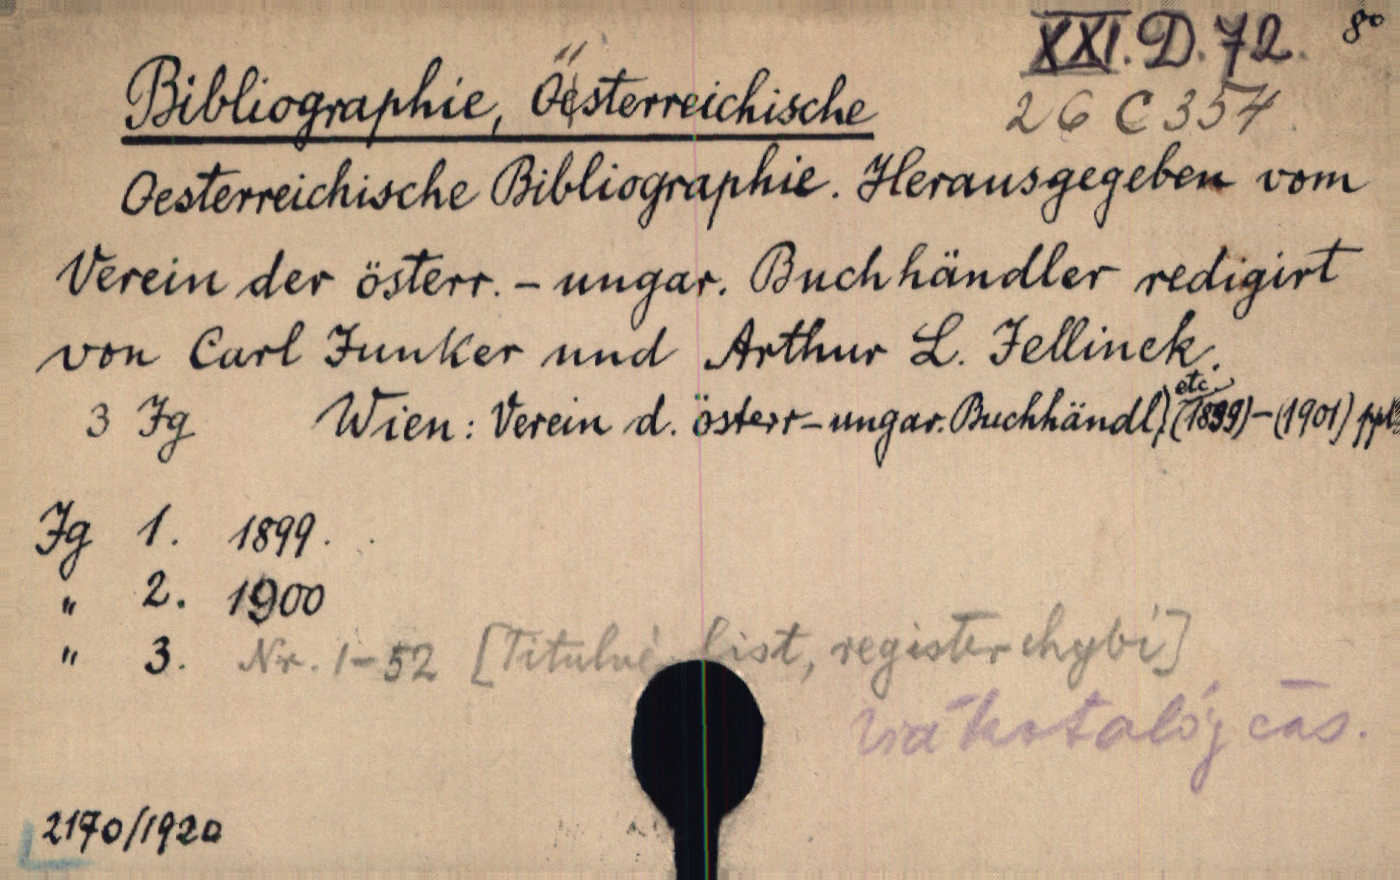 XXI.D.72. 8°
Bibliographie, Österreichische
26 C 354
Oesterreichische Bibliographie. Herausgegeben vom
Verein der österr. - ungar. Buchhändler redigirt
von Carl Junker und Arthur L. Jellinek.
etc.
3 Jg Wien: Verein d. österr-ungar. Buchhändl, (1899)-(1901)
Jg 1. 1899.
" 2. 1900
" 3. Nr. 1-52 [Titulné list, register chybí]
katalóg čas.
2170/1920